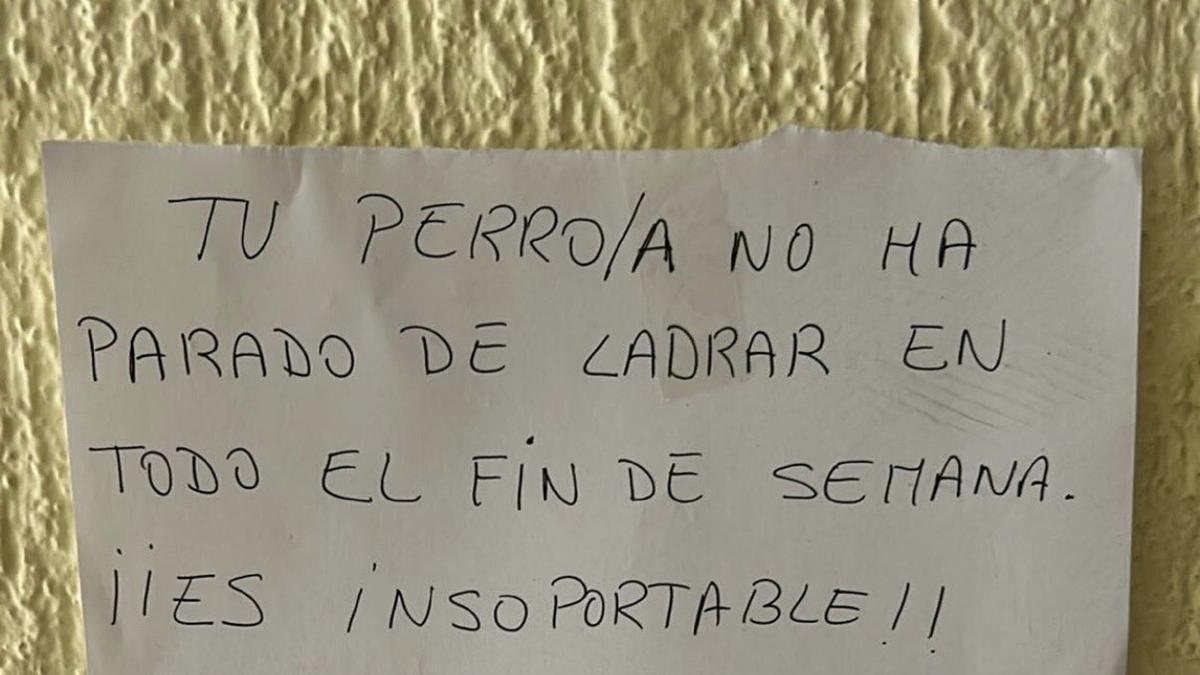 TU PERRO/A NO HA
PARADO DE LADRAR EN
TODO EL FIN DE SEMANA.
¡¡ES INSOPORTABLE!!